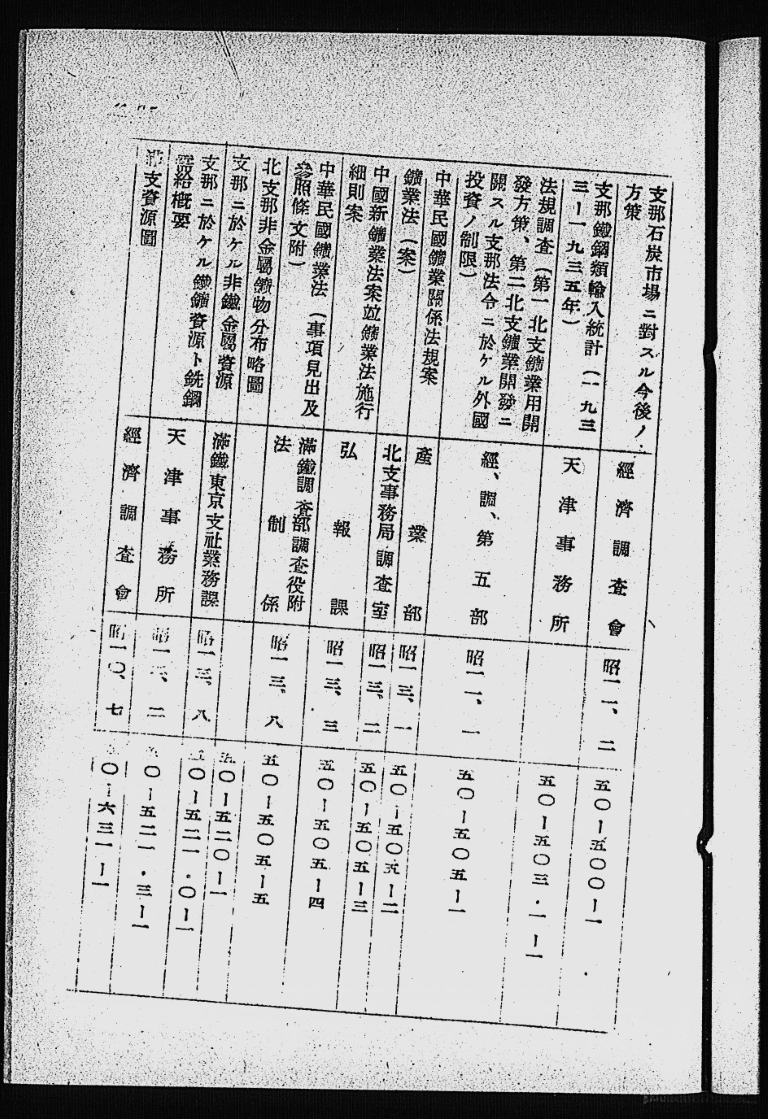 支那石炭市場ニ對スル今後ノ
方策
經濟調查會
昭一一、二
五〇ー五〇〇ー一
支那鐵鋼類輸入統計(一九三
三ー一九三五年)
天津事務所
五〇ー五〇三・一ー一
法規調査(第一北支鑛業用開
發方策、第二北支鑛業開發ニ
關スル支那法令ニ於ケル外國
投資ノ制限)
經、調、第五部
昭一一、一
五〇ー五〇五ー一
中華民國鑛業關係法規案
產業部
昭一三、一
五〇ー五〇五ー二
鑛業法(案)
北支事務局調査室
昭一三、二
五〇ー五〇五ー三
中國新鑛業法案竝鑛業法施行
細則案
弘報課
昭一三、三
五〇ー五〇五ー四
中華民國鑛業法(事項見出及
參照條文附)
滿鐵調査部調査役附
法制係
昭一三、八
五〇ー五〇五ー五
北支那非金屬鑛物分布略圖
五〇ー五二〇ー一
支那ニ於ケル非鐵金屬資源
滿鐵東京支社業務課
昭一三、八
五〇ー五二一・〇ー一
支那ニ於ケル鐵鑛資源ト銑鋼
給概要
天津事務所
昭一、二
五〇ー五二一・三ー一
支資源圖
經濟調査會
昭一〇、七
〇ー六三一ー一